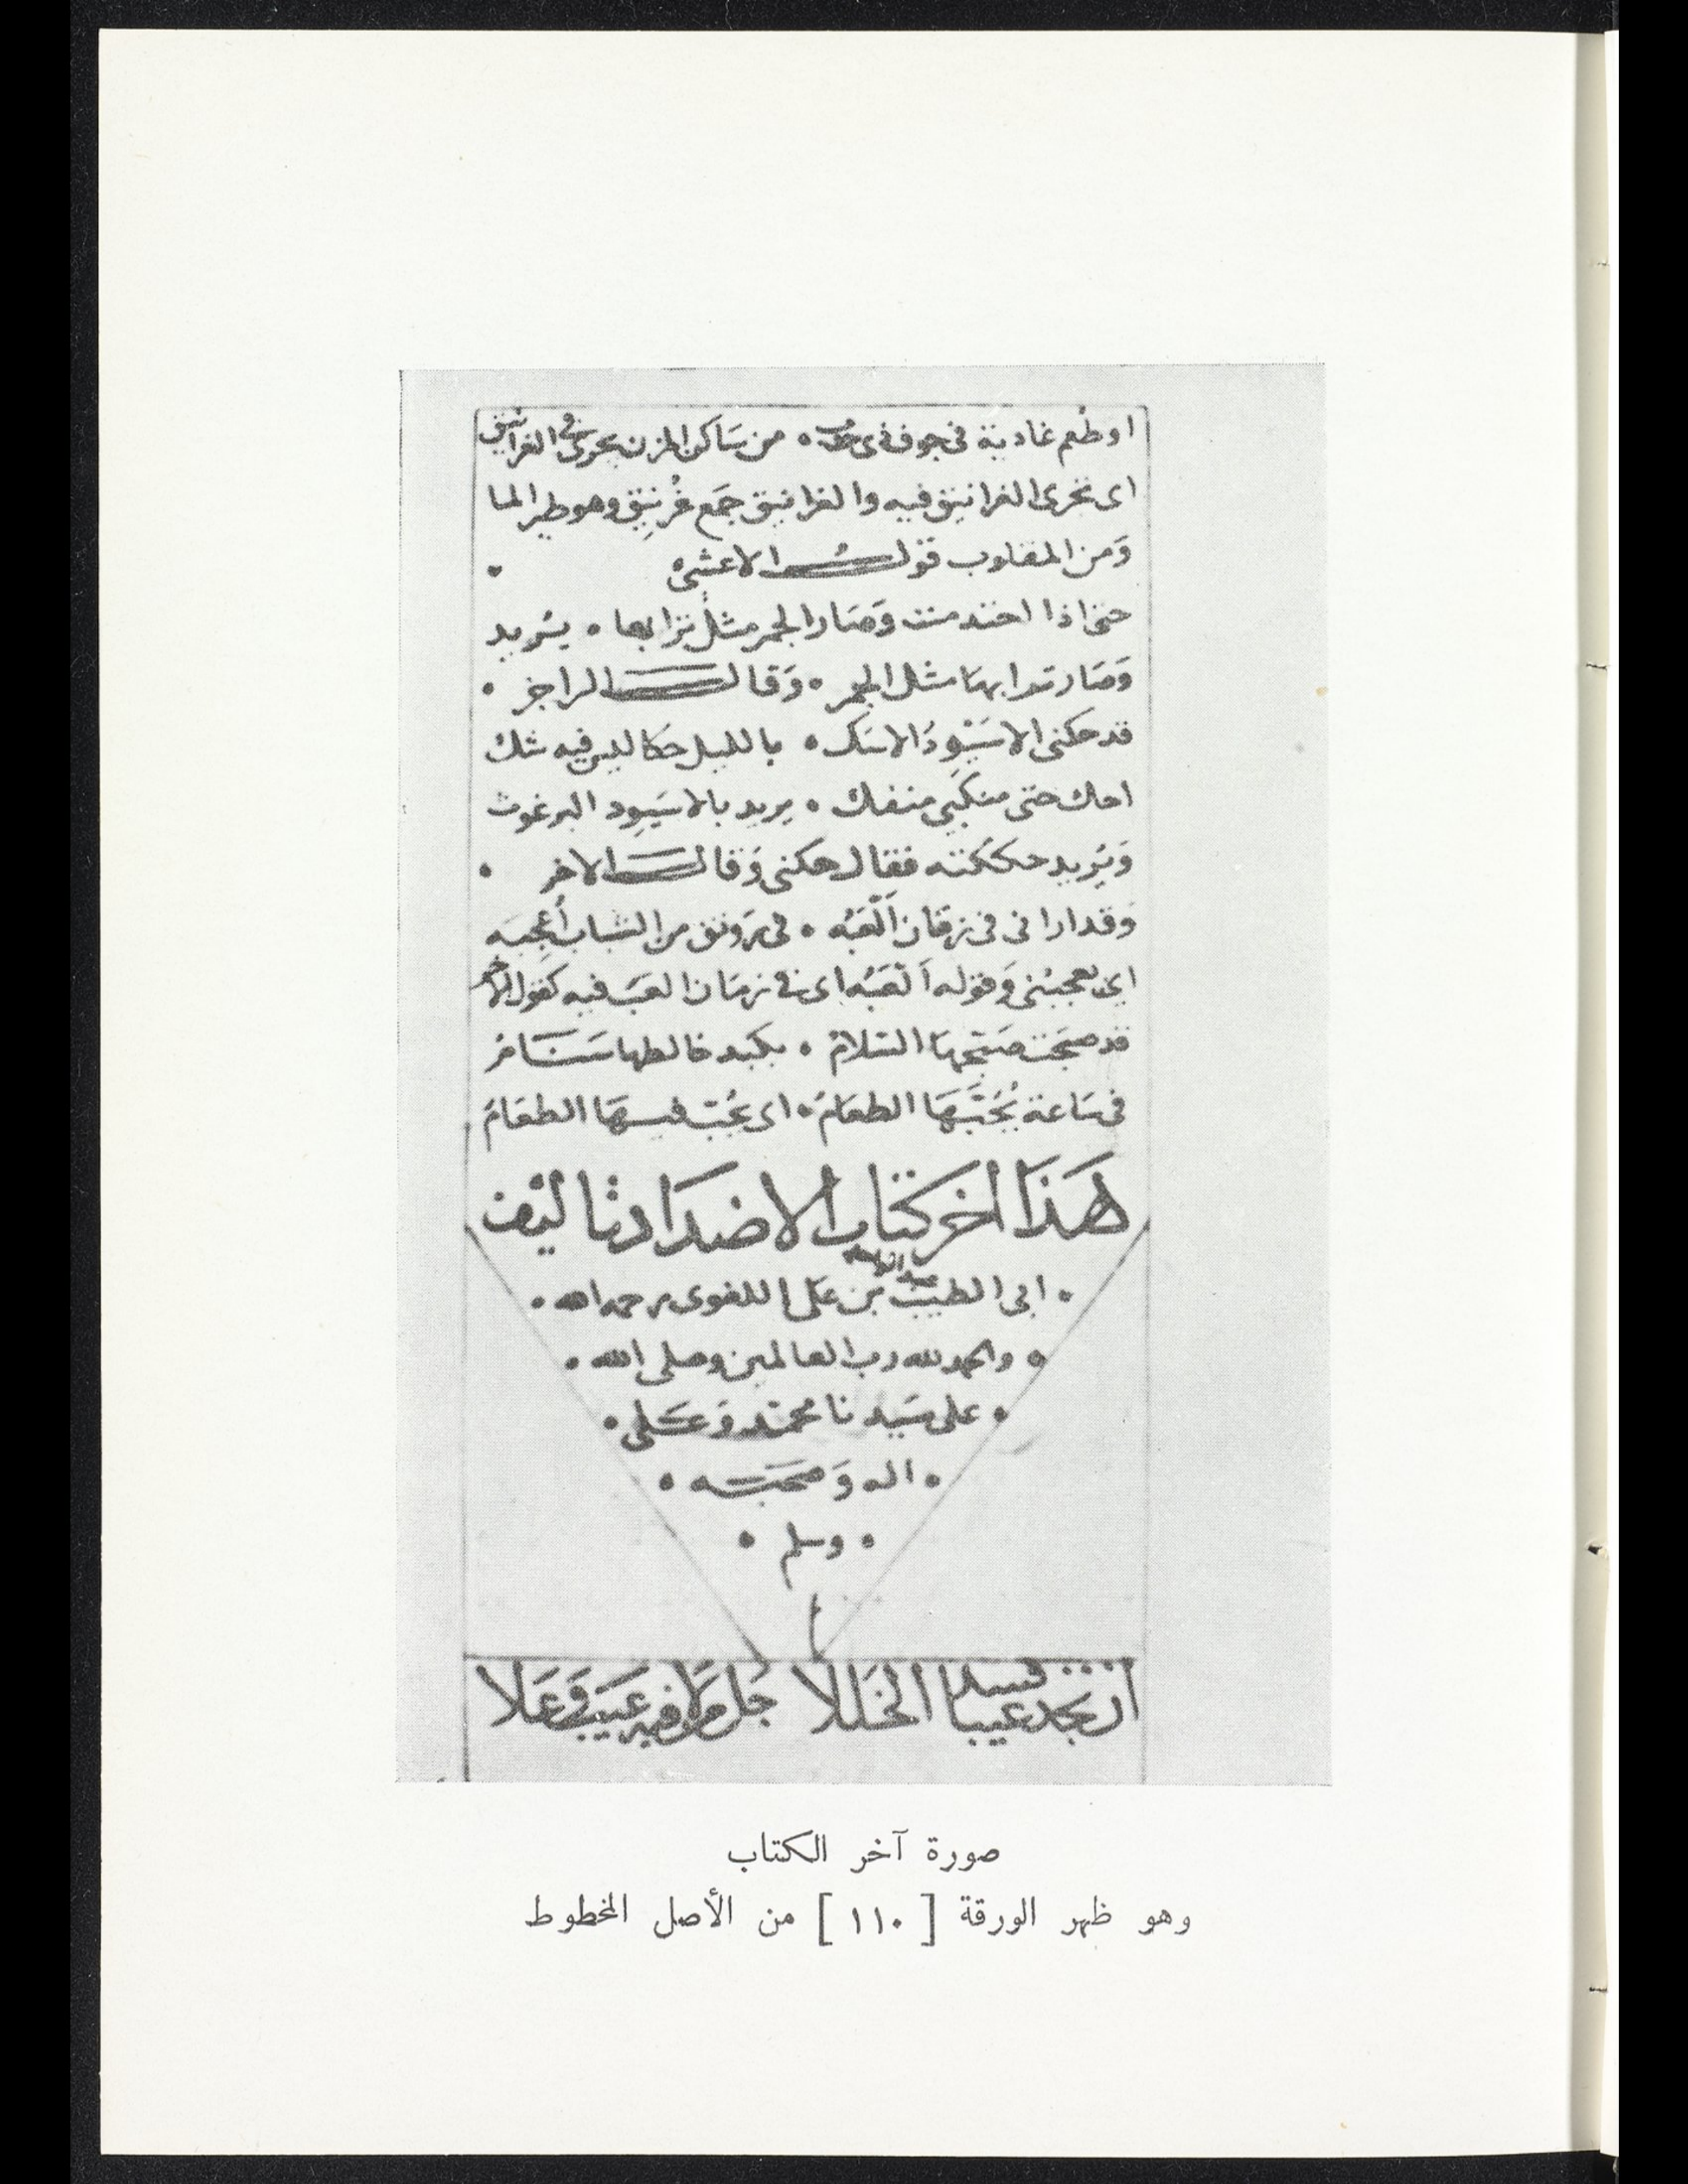 او طعم غادية في جوف ذي حدب ۰ من ساكن المزن يجري في الغرانيق
اى تجرى الغرانيق فيه والغرانيق جمع غُرنيق وهو طير الما
وَمن المقلوب قول الاعشى ۰
حتى اذا احتدمت وَصَار الجمر مثل ترابها ۰ يريد
وَصَار ترابها مثل الجمر ۰ وَقال الراجز ۰
قد حكنى الاسَيْوِدُ الاسَك ۰ بالليل حكا ليس فيه شك
احك حتى منكبى منفك ۰ يريد بالاسَيوِد البرغوث
وَيُريد حككته فقال حكنى وَقال الاخر ۰
وَقد ارانى فى زمَان اَلْعَبُه ۰ فى رَونق من الشباب أُعْجِبَه
اى يعجبنى وَقوله اَلْعَبُه اى فى زمَان العَب فيه كقول الاخر
قد صبَّحَت صَبَّحهَا السَّلامُ ۰ بكبد خالطها سَنَامُ
فى سَاعة يُحَبَّهَا الطعَامُ ۰ اى يُحَبّ فيهَا الطعَامُ
هَذَا اخر كتاب الاضدَاد تاليف
۰ ابى الطيب عبد الواحد بن عَلى اللغوى رحمه الله ۰
۰ والحمد لله رب العالمين وصلى الله ۰
۰ على سَيدنا محمَّد وَعَلى ۰
۰ اله وَصَحْبه ۰
۰ وسلم ۰
ان تجد عيبا فسد الخللا جل من لا فيه عيب وعلا
صورة آخر الكتاب
وهو ظهر الورقة [ ١١٠ ] من الأصل المخطوط